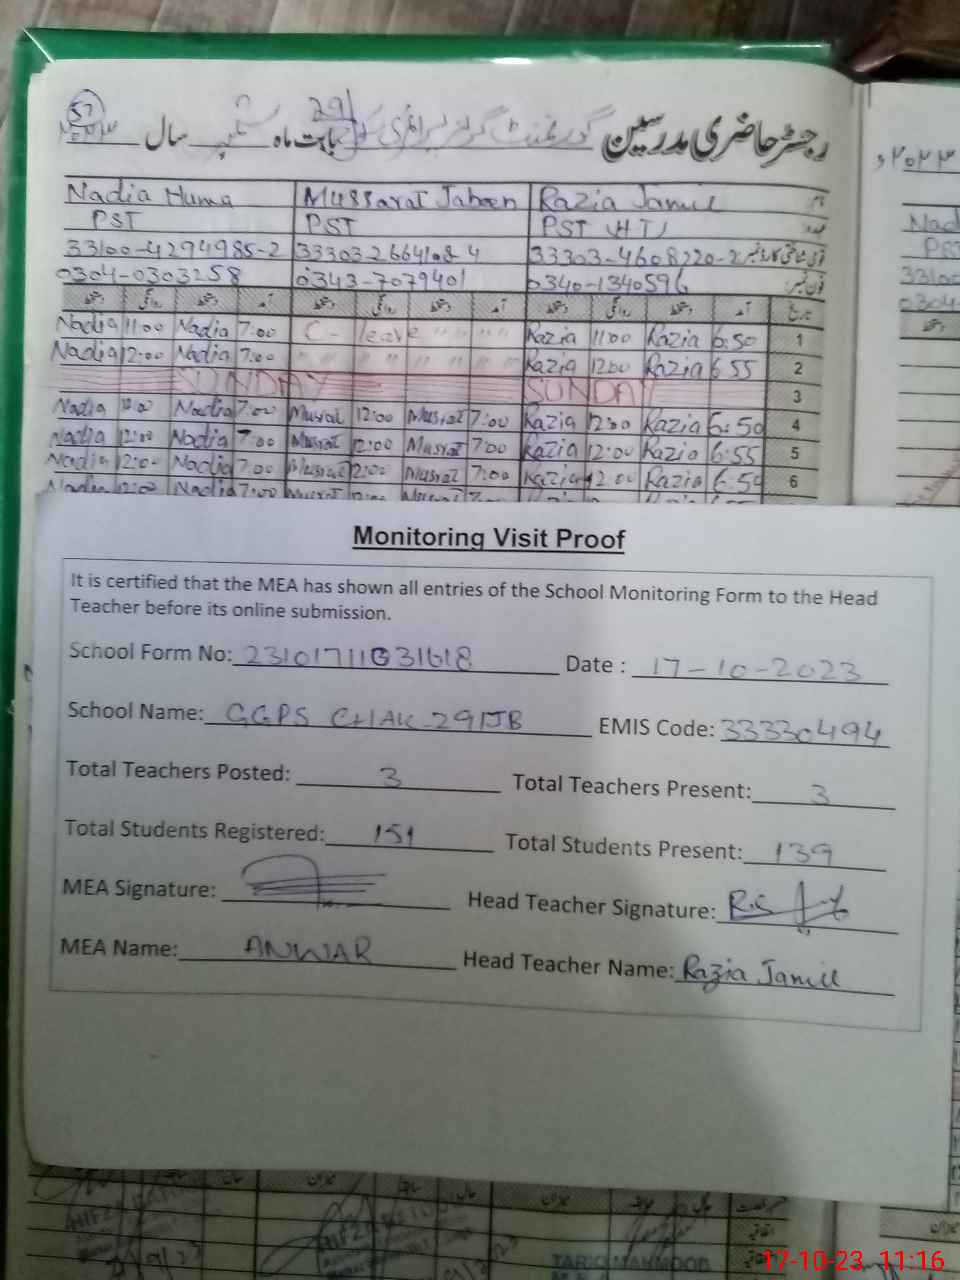 57
291
رجسٹر حاضری مدرسین گورنمنٹ گرلز پرائمری بابت ماہ ستمبر سال
۲۰۲۳ء
Nadia Huma Mussarat Jabeen Razia Jamil
PST PST PST (HT)
33100-4294985-2 33303-4608220-2
0304-0303258 0343-7079401 0340-1340596
Nadia 11:00 Nadia 7:00 C- leave " " " " Razia 11:00 Razia 6:50 1
Nadia 12:00 Nadia 7:00 " " " " " " Razia 12:00 Razia 6:55 2
SUNDAY SUNDAY 3
Nadia Nadia 7:00 Musrat 12:00 Musrat 7:00 Razia 12:00 Razia 6:50 4
Nadia 12:00 Nadia 7:00 Musrat 12:00 Musrat 7:00 Razia 12:00 Razia 6:55 5
Nadia 12:00 Nadia 7:00 Musrat 12:00 Musrat 7:00 Razia 12:00 Razia 6:50 6
Monitoring Visit Proof
It is certified that the MEA has shown all entries of the School Monitoring Form to the Head
Teacher before its online submission.
School Form No: 23101711031618 Date : 17-10-2023
School Name: GGPS CHAK-291JB EMIS Code: 33330494
Total Teachers Posted: 3 Total Teachers Present: 3
Total Students Registered: 151 Total Students Present: 139
MEA Signature: Head Teacher Signature:
MEA Name: ANWAR Head Teacher Name: Razia Jamil
TARIQ MAHMOOD
17-10-23 11:16